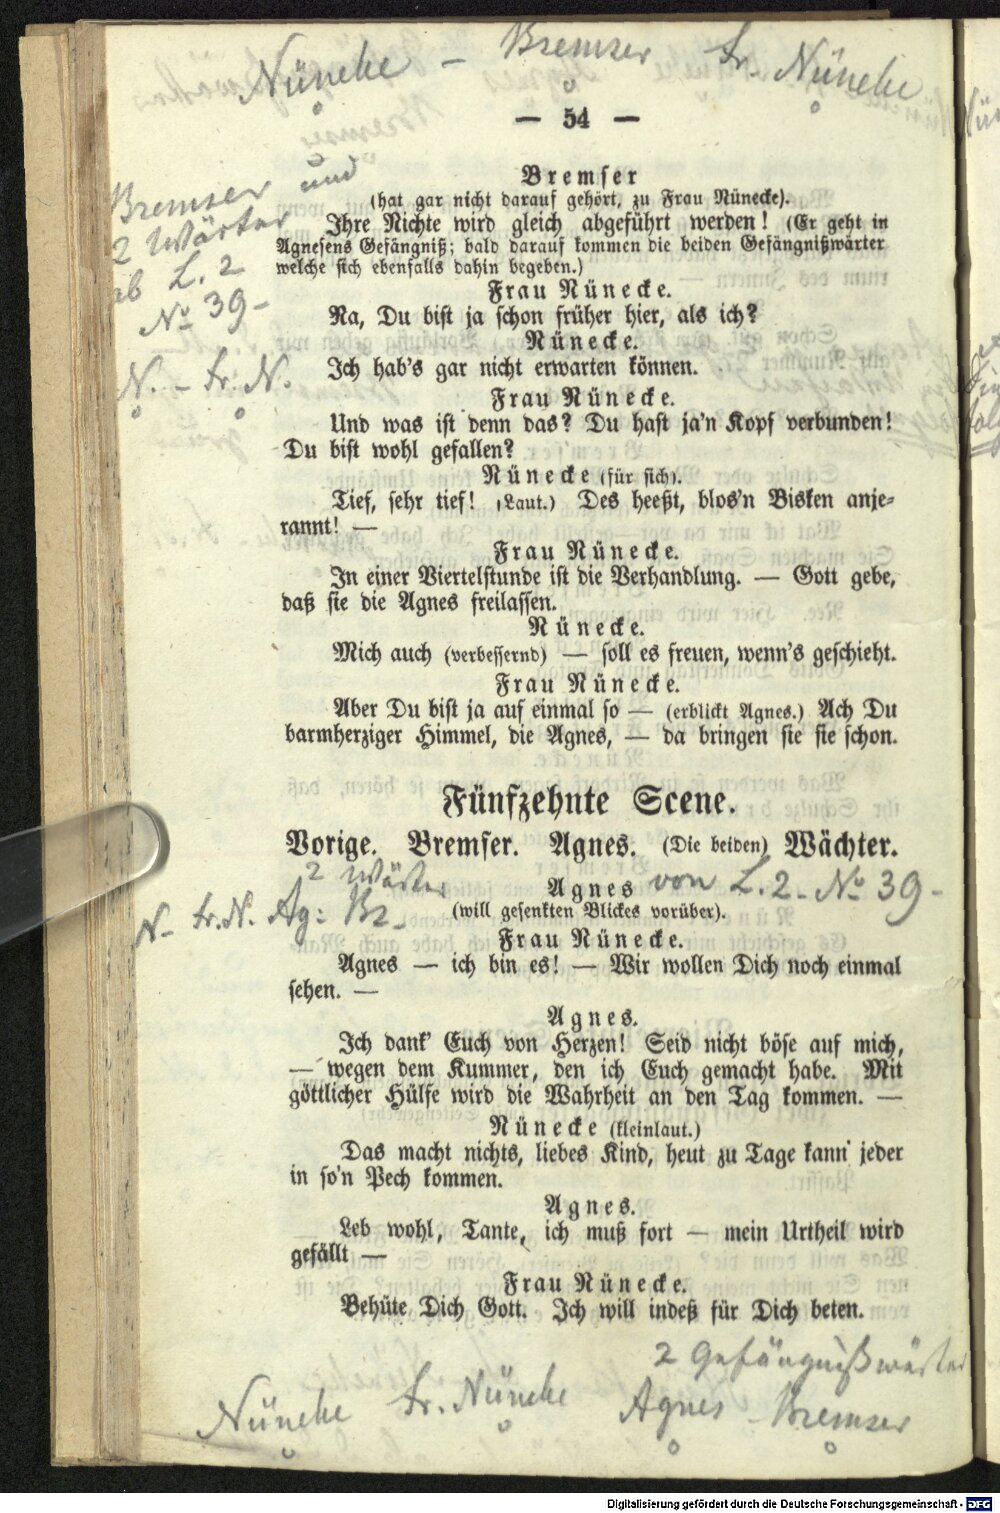 Nünecke – Bremser Fr. Nünecke
— 54 —
Bremser und
2 Wärter
ab L. 2
No 39 –
N. – Fr. N.
Bremser
(hat gar nicht darauf gehört, zu Frau Nünecke).
Ihre Nichte wird gleich abgeführt werden! (Er geht in
Agnesens Gefängniß; bald darauf kommen die beiden Gefängnißwärter
welche sich ebenfalls dahin begeben.)
Frau Nünecke.
Na, Du bist ja schon früher hier, als ich?
Nünecke.
Ich hab's gar nicht erwarten können.
Frau Nünecke.
Und was ist denn das? Du hast ja'n Kopf verbunden!
Du bist wohl gefallen?
Nünecke (für sich).
Tief, sehr tief! (Laut.) Des heeßt, blos'n Bisken anje-
rannt! —
Frau Nünecke.
In einer Viertelstunde ist die Verhandlung. — Gott gebe,
daß sie die Agnes freilassen.
Nünecke.
Mich auch (verbessernd) — soll es freuen, wenn's geschieht.
Frau Nünecke.
Aber Du bist ja auf einmal so — (erblickt Agnes.) Ach Du
barmherziger Himmel, die Agnes, — da bringen sie sie schon.
Fünfzehnte Scene.
Vorige. Bremser. Agnes. (Die beiden) Wächter.
2 Wärter
N – Fr. N. Ag: Br –
Agnes von L. 2. No 39 –
(will gesenkten Blickes vorüber).
Frau Nünecke.
Agnes — ich bin es! — Wir wollen Dich noch einmal
sehen. —
Agnes.
Ich dank' Euch von Herzen! Seid nicht böse auf mich,
— wegen dem Kummer, den ich Euch gemacht habe. Mit
göttlicher Hülfe wird die Wahrheit an den Tag kommen. —
Nünecke (kleinlaut.)
Das macht nichts, liebes Kind, heut zu Tage kann jeder
in so'n Pech kommen.
Agnes.
Leb wohl, Tante, ich muß fort — mein Urtheil wird
gefällt —
Frau Nünecke.
Behüte Dich Gott. Ich will indeß für Dich beten.
2 Gefängnißwärter
Nünecke Fr. Nünecke Agnes Bremser
Digitalisierung gefördert durch die Deutsche Forschungsgemeinschaft - DFG